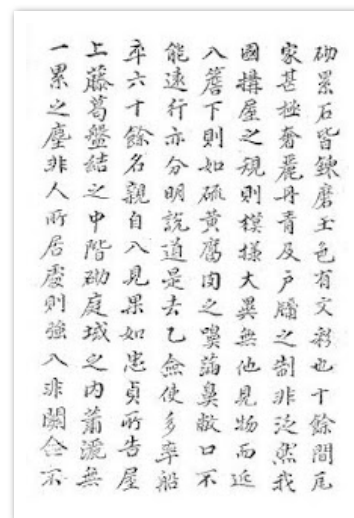 砌累石皆鍊磨玉色有文彩也十餘間瓦
家甚極奢麗丹青及戶牖之制非泛然我
國搆屋之規則模㨾大異無他見物而延
入簷下則如硫黃腐肉之嗅滿鼻蔽口不
能遠行亦分明說道是去乙僉使多率船
卒六十餘名親自入見果如忠貞所告屋
上藤葛盤結之中階砌庭域之內蕭灑無
一累之塵非人所居處則強入非關 不